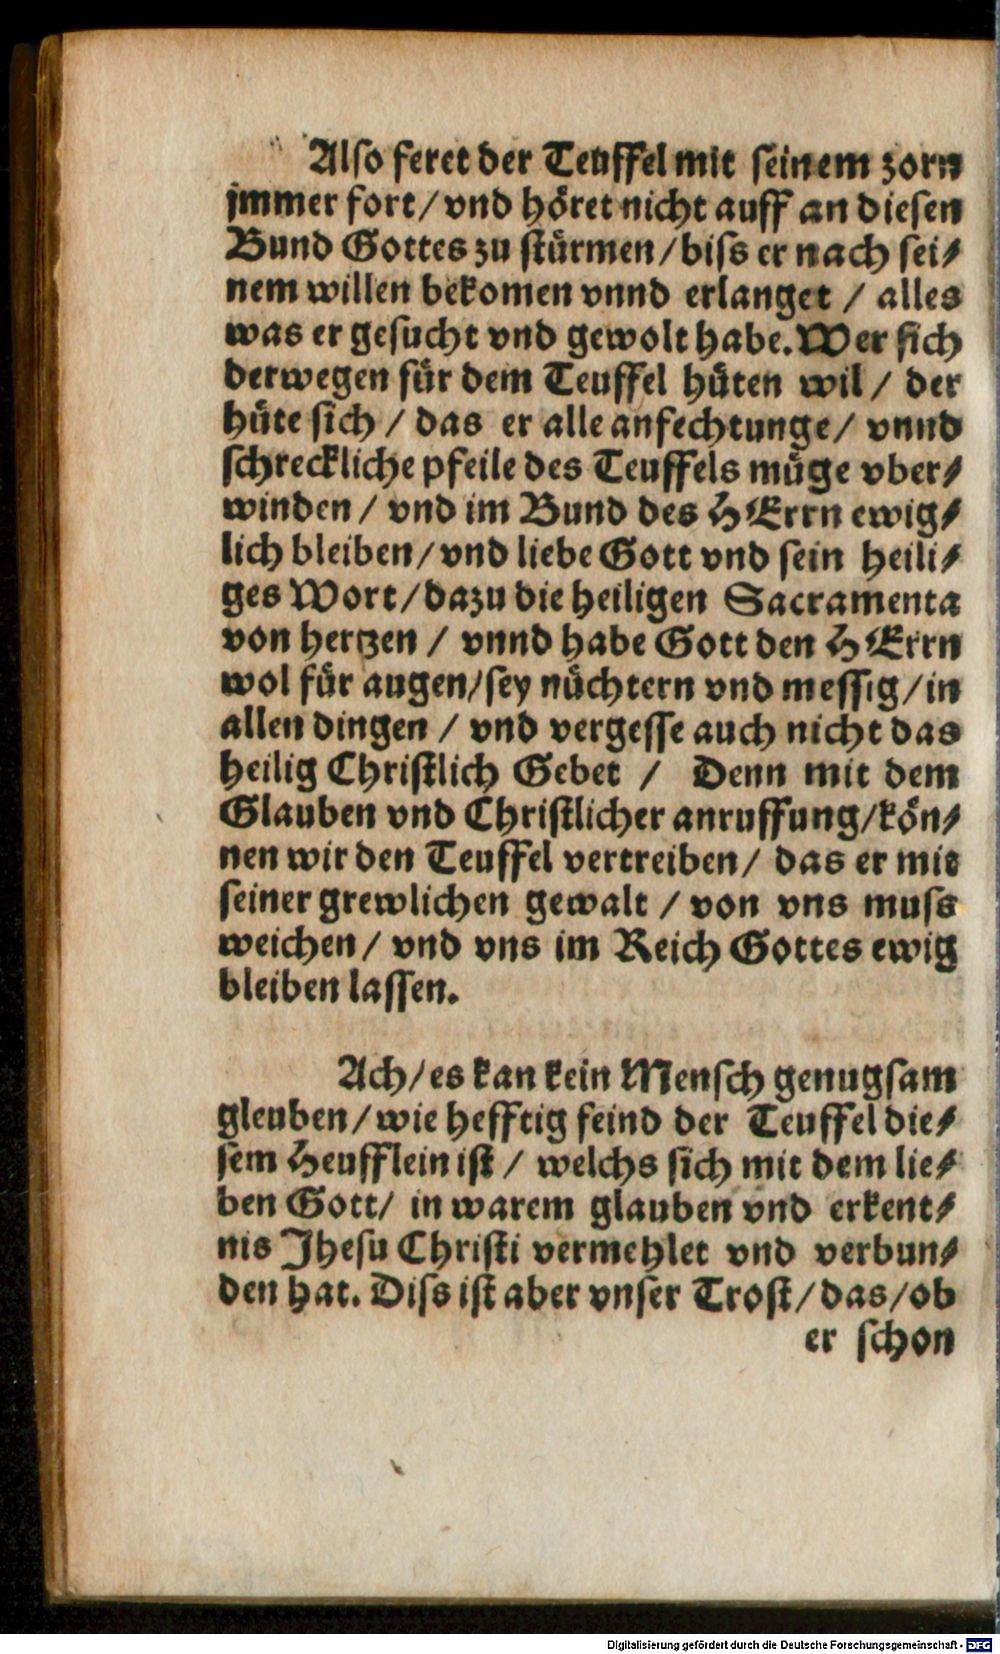 Also feret der Teuffel mit seinem zorn
jmmer fort/ vnd höret nicht auff an diesen
Bund Gottes zu stürmen/ biss er nach sei⸗
nem willen bekomen vnnd erlanget / alles
was er gesucht vnd gewolt habe. Wer sich
derwegen für dem Teuffel hüten wil / der
hüte sich / das er alle anfechtunge/ vnnd
schreckliche pfeile des Teuffels müge vber⸗
winden / vnd im Bund des HErrn ewig⸗
lich bleiben/ vnd liebe Gott vnd sein heili⸗
ges Wort/ dazu die heiligen Sacramenta
von hertzen / vnnd habe Gott den HErrn
wol für augen/ sey nüchtern vnd messig/ in
allen dingen / vnd vergesse auch nicht das
heilig Christlich Gebet / Denn mit dem
Glauben vnd Christlicher anruffung/ kön⸗
nen wir den Teuffel vertreiben/ das er mit
seiner grewlichen gewalt / von vns muss
weichen / vnd vns im Reich Gottes ewig
bleiben lassen.
Ach/ es kan kein Mensch genugsam
gleuben/ wie hefftig feind der Teuffel die⸗
sem Heufflein ist / welchs sich mit dem lie⸗
ben Gott/ in warem glauben vnd erkent⸗
nis Jhesu Christi vermehlet vnd verbun⸗
den hat. Diss ist aber vnser Trost/ das/ ob
er schon
Digitalisierung gefördert durch die Deutsche Forschungsgemeinschaft - DFG